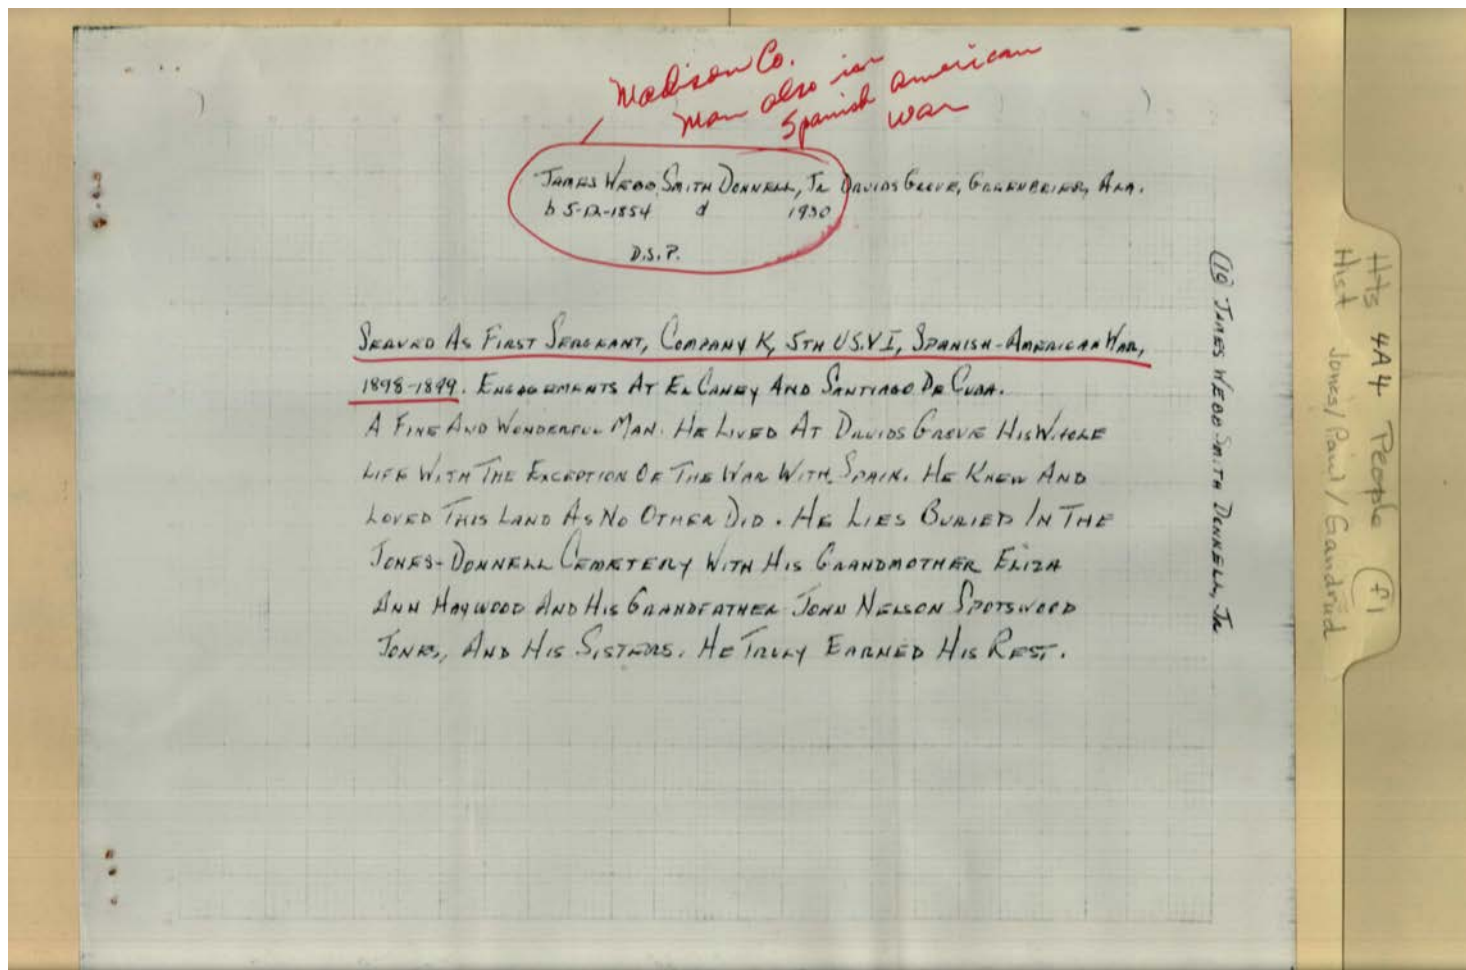 Madison Co.
Man also in
Spanish American
War
James Webb Smith Donnell, Jr Druids Grove, Greenbrier, Ala.
b 5-12-1854 d 1930
D.S.P.
Served As First Sergeant, Company K, 5th U.S.V.I, Spanish-American War,
1898-1899. Engagements At El Caney And Santiago De Cuba.
A Fine And Wonderful Man. He Lived At Druids Grove His Whole
Life With The Exception Of The War With Spain. He Knew And
Loved This Land As No Other Did. He Lies Buried In The
Jones-Donnell Cemetery With His Grandmother Eliza
Ann Haywood And His Grandfather John Nelson Spotswood
Jones, And His Sisters. He Truly Earned His Rest.
(19) James Webb Smith Donnell, Jr
Hts 4A4 People f1
Hist Jones/Paul/Gandrud